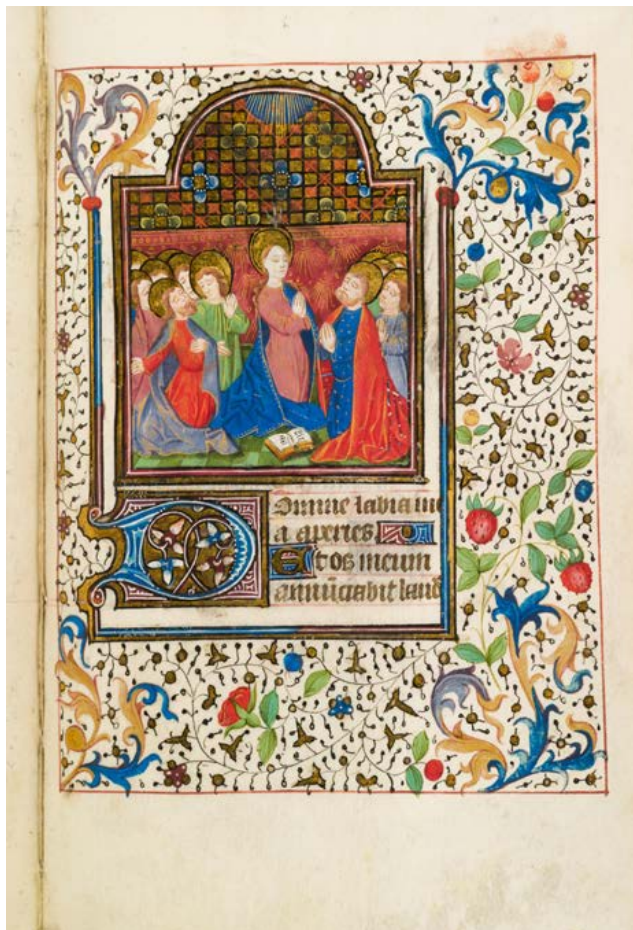 Domine labia me
a aperies.
Et os meum
annũciabit laud